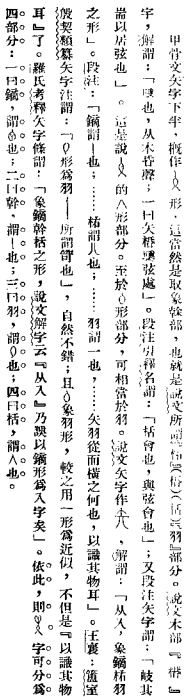 甲骨文矢字下半，概作
形，這當然是取象幹部，也就是說文所謂
部分。說文木部「桰」
字，解謂：「
也，从木昏聲；一曰矢桰
弦處」。段注引釋名謂：「括會也，與弦會也」；又段注矢字謂：「岐其
耑以居弦也」。這是說
的八形部分。至於
形部分，可相當於羽。說文矢字作
，解謂：「从入，象鏑桰羽
之形」。段注：「鏑謂一也；……桰謂八也；……羽謂一也，……矢羽從而橫之何也，以識其物耳」。王襄：簠室
殷契類纂矢字注謂：「
形為羽——所謂笴也」，自然不錯；且
象羽形，較之用一形為近似，不但是『以識其物
耳』了。羅氏考釋矢字條謂：「象鏑幹桰之形，說文解字云『从入』乃誤以鏑形為入字矣」。依此，則
字可分為
四部分：一曰鏑，謂
也；二曰幹，謂｜也；三曰羽，謂
也；四曰桰，謂八也。